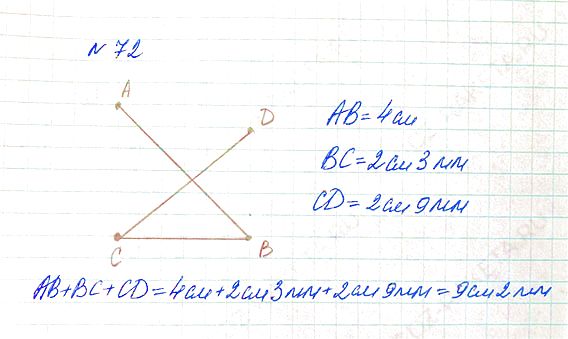 № 72
A
D
C
B
AB = 4см
BC = 2см 3мм
CD = 2см 9мм
AB+BC+CD = 4см+2см 3мм+2см 9мм = 9см 2мм